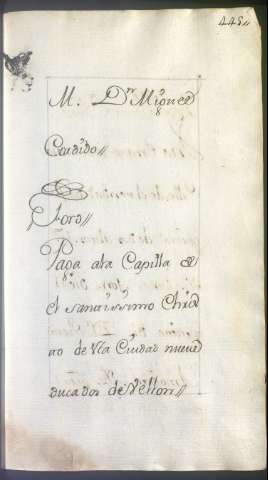 445//
M. Dn Miguel
Candido//
Foro//
Paga ala Capilla de
el sanctissimo Christ
ao de Vta Ciudad nueve
ducados de vellon//